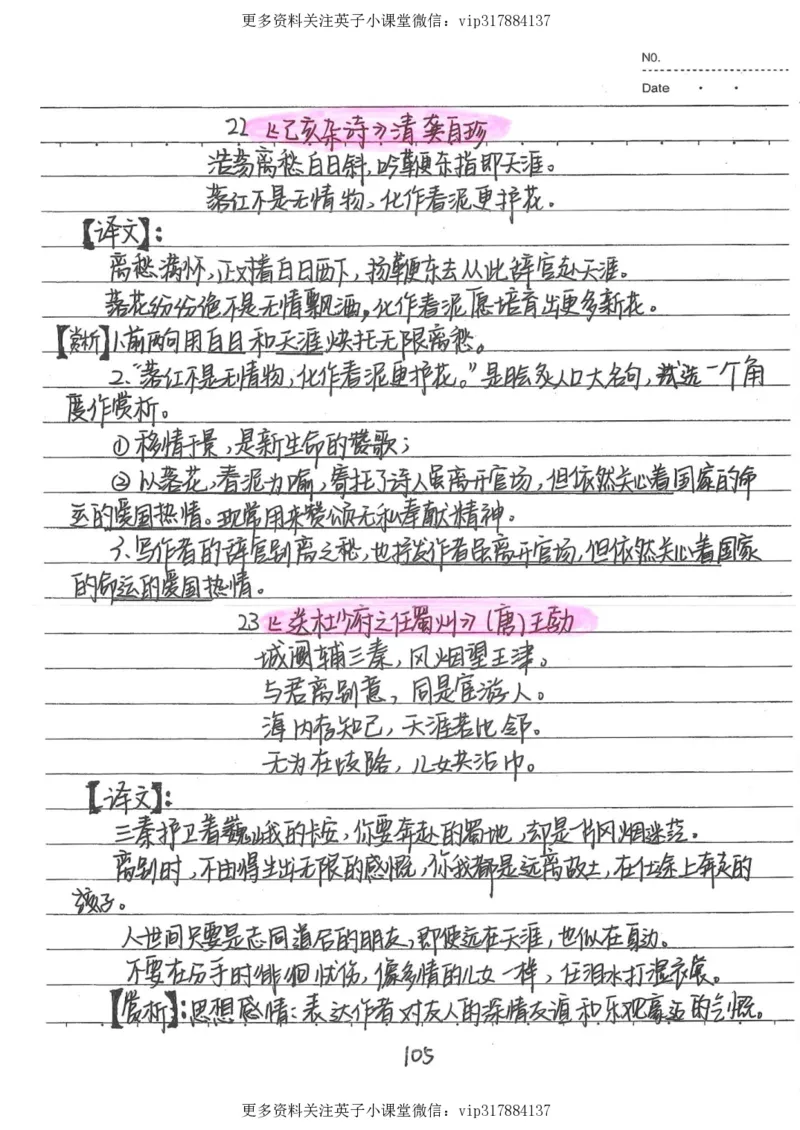 更多资料关注英子小课堂微信：vip317884137
NO.
Date
22《己亥杂诗》清 龚自珍
浩荡离愁白日斜，吟鞭东指即天涯。
落红不是无情物，化作春泥更护花。
【译文】：
离愁满怀，正对着白日西下，扬鞭东去从此辞官赴天涯。
落花纷纷绝不是无情飘洒，化作春泥愿培育出更多新花。
【赏析】1、前两句用白日和天涯烘托无限离愁。
2、“落红不是无情物，化作春泥更护花。”是脍炙人口大名句，试选一个角
度作赏析。
①移情于景，是新生命的赞歌；
②以落花，春泥为喻，寄托了诗人虽离开官场，但依然关心着国家的命
运的爱国热情。现常用来赞颂无私奉献精神。
3、写作者的辞官别离之愁，也抒发作者虽离开官场，但依然关心着国家
的命运的爱国热情。
23《送杜少府之任蜀州》(唐)王勃
城阙辅三秦，风烟望王津。
与君离别意，同是宦游人。
海内存知己，天涯若比邻。
无为在歧路，儿女共沾巾。
【译文】：
三秦护卫着巍峨的长安，你要奔赴的蜀地，却是一片风烟迷茫。
离别时，不由得生出无限的感慨，你我都是远离故土，在仕途上奔走的
孩子。
人世间只要是志同道合的朋友，即使远在天涯，也似在身边。
不要在分手时徘徊忧伤，像多情的儿女一样，任泪水打湿衣裳。
【赏析】：思想感情：表达作者对友人的深情友谊和乐观豪迈的气慨。
105
更多资料关注英子小课堂微信：vip317884137